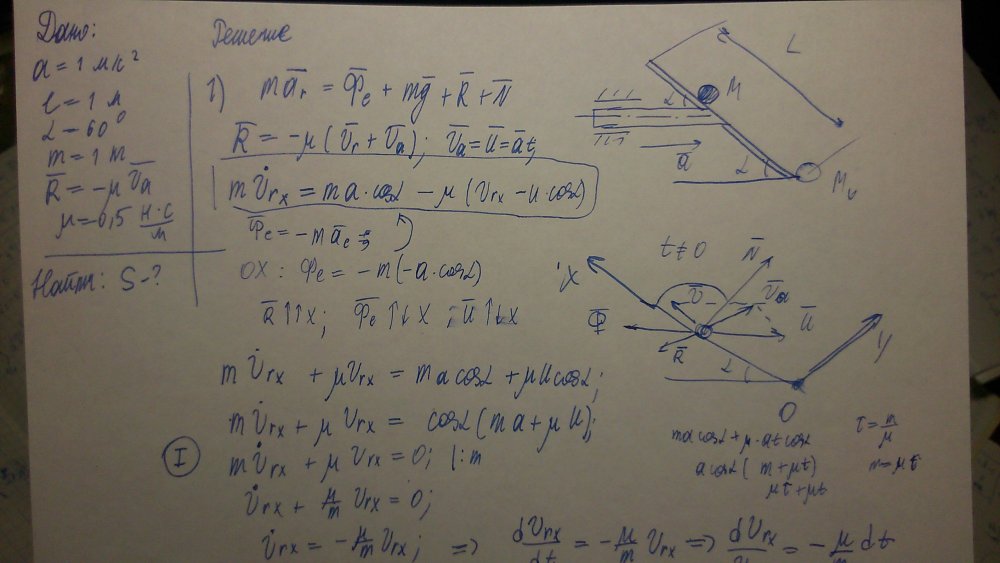 Дано:
a = 1 м/с²
l = 1 м
α = 60°
m = 1
R̅ = -μ V̅a
μ = 0,5 Н·с/м
Найти: S - ?
Решение
1) ma̅r = Ф̅e + mg̅ + R̅ + N̅
R̅ = -μ (V̅r + V̅a); V̅a = U̅ = a̅t;
mV̇rx = ma·cosα - μ (Vrx - u cosα)
Ф̅e = -ma̅e
OX: Фe = -m(-a·cosα)
R̅ ↑↑ X; Ф̅e ↑↓ X; U̅ ↑↓ X
mV̇rx + μVrx = ma cosα + μU cosα;
mV̇rx + μVrx = cosα (ma + μU);
I
mV̇rx + μVrx = 0; |:m
V̇rx + μ/m Vrx = 0;
V̇rx = -μ/m Vrx; => dVrx/dt = -μ/m Vrx => dVrx/ = -μ/m dt
L
M
α
a̅
α
M₀
t ≠ 0
N̅
X
V̅a
Ф̅
U̅
R̅
α
Y
O
ma cosα + μ·at cosα
a cosα (m + μt)
μτ + μt
τ = m/μ
m = μτ